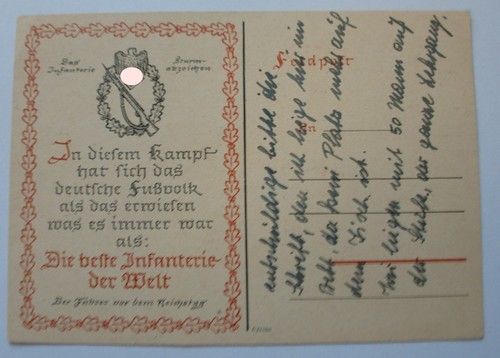 Das Infanterie
Sturm-
abzeichen
In diesem Kampf
hat sich das
deutsche Fußvolk
als das erwiesen
was es immer war
als:
Die beste Infanterie
der Welt
Der Führer vor dem Reichstag
Feldpost
An
entschuldige bitte die
Schrift, denn ich liege hier im
Bett da kein Platz mehr auf
dem Tisch ist.
Wir liegen mit 50 Mann auf
der Stube, der ganze Lehrgang.